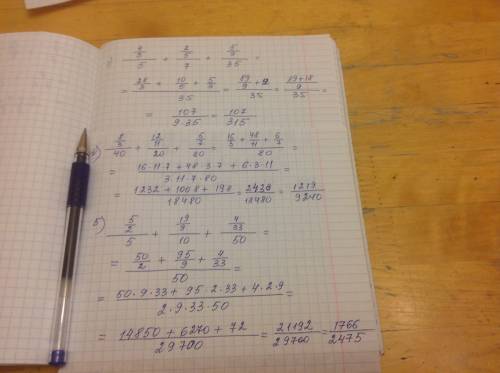 ) (4/3)/5 + (2/5)/7 + (5/9)/35 =
= (28/3 + 10/5 + 5/9)/35 = (89/9 + 2)/35 = ((89+18)/9)/35 =
= 107/(9·35) = 107/315
4) (8/3)/40 + (12/11)/20 + (6/7)/80 = (16/3 + 48/11 + 6/7)/80 =
= (16·11·7 + 48·3·7 + 6·3·11)/(3·11·7·80) =
= (1232 + 1008 + 198)/18480 = 2438/18480 = 1219/9240
5) (5/2)/5 + (19/9)/10 + (4/33)/50 =
= (50/2 + 95/9 + 4/33)/50 =
= (50·9·33 + 95·2·33 + 4·2·9)/(2·9·33·50) =
= (14850 + 6270 + 72)/29700 = 21192/29700 = 1766/2475